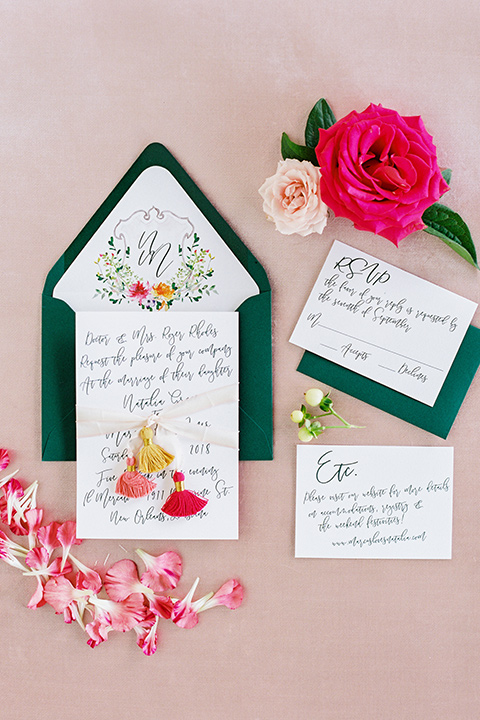 M
Doctor & Mrs. Roger Rhodes
Request the pleasure of your company
At the marriage of their daughter
Natalia
Saturday 2018
in the evening
Il Mercato 1911 St.
New Orleans,
RSVP
the favor of your reply is requested by
the seventh of September
M
Accepts Declines
Etc.
Please visit our website for more details
on accommodations, registry &
the weekend festivities!
www.marcuslovesnatalia.com